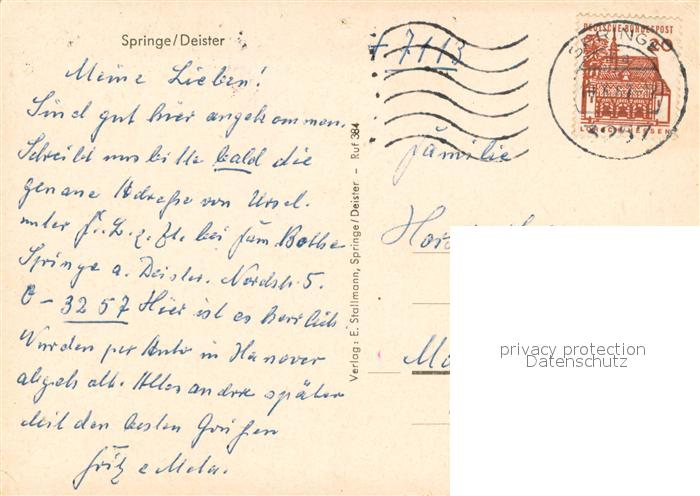 Springe/Deister
Meine Lieben!
Sind gut hier angekommen.
Schreibt uns bitte bald die
genaue Adresse von Ursel.
unter F. L. z. Zt. bei Fam. Bothe
Springe a. Deister. Nordstr. 5.
3257 Hier ist es herrlich
Wurden per Auto in Hanover
abgeholt. Alles andre später
Mit den besten Grüßen
Fritz e Meta.
Verlag: E. Stallmann, Springe/Deister – Ruf 384
+ 7113
DEUTSCHE BUNDESPOST
20
LORSCH HESSEN
SPRINGE
3257
Familie
privacy protection
Datenschutz